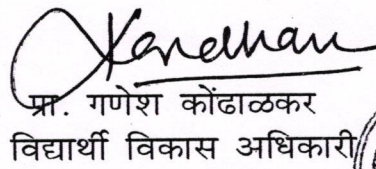 प्रा. गणेश कोंढाळकर
विद्यार्थी विकास अधिकारी